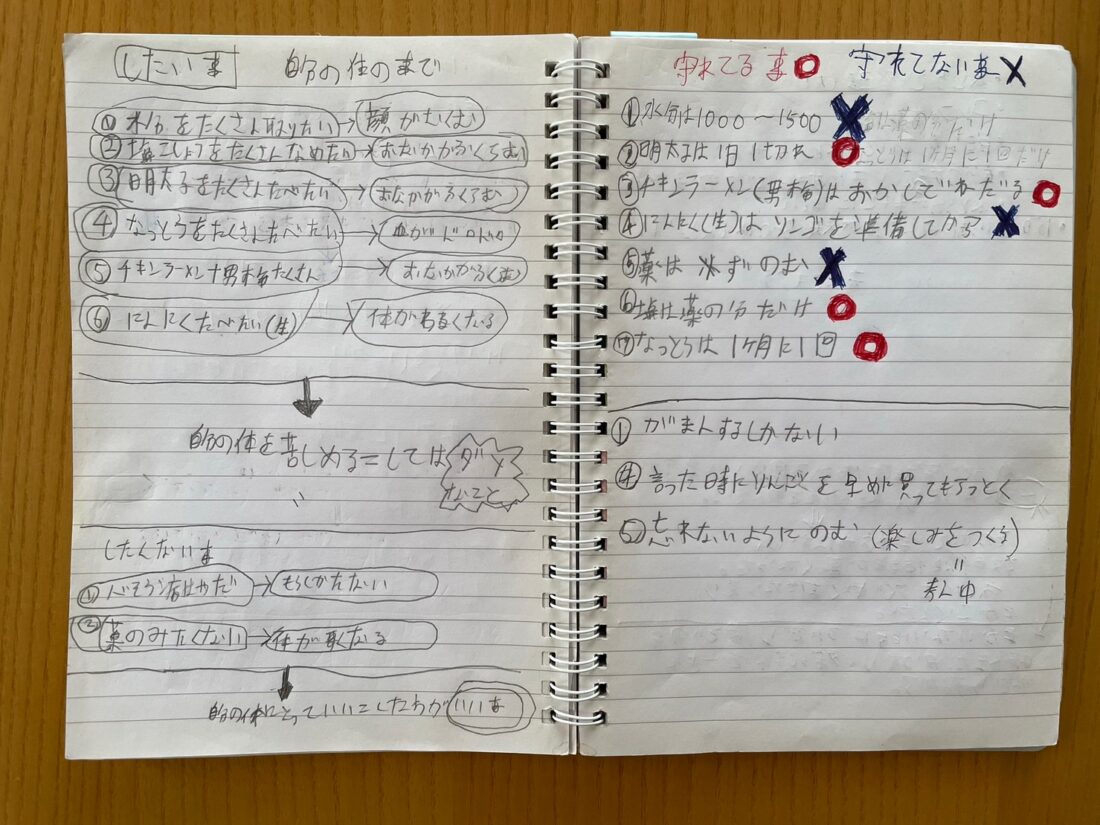 したい事 自分の体のまで
① 水分をたくさん取りたい→顔がむくむ
② 塩こしょうをたくさんなめたい→おなかがふくらむ
③ 明太子をたくさんたべたい→おなかがふくらむ
④ なっとうをたくさんたべたい→血がドロドロ
⑤ チキンラーメン+男梅たくさん→おなかがふくらむ
⑥ にんにくたべたい(生)→体がわるくなる
↓
自分の体を苦しめるこしては ダメ
なこと
したくない事
① はやだ→もうしかたない
② 薬のみたくない→体が悪くなる
↓
自分の体にとっていいこしたわが いい事
守れてる事○ 守れてない事×
① 水分は1000〜1500 ×
② 明太子は1日1切れ ○
③ チキンラーメン(男梅)は ○
④ にんにく(生)はリンゴを準備してから ×
⑤ 薬は必ずのむ ×
⑥ 塩は薬の分だけ ○
⑦ なっとうは1ヶ月に1回 ○
① がまんするしかない
④ 言った時にりんごを早めに買ってもらっとく
⑤ 忘れないようにのむ (楽しみをつくる)
〃
考え中